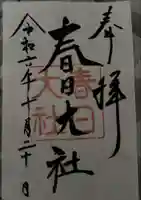 奉拝
春日大社
令和六年十月二十日
春日大社